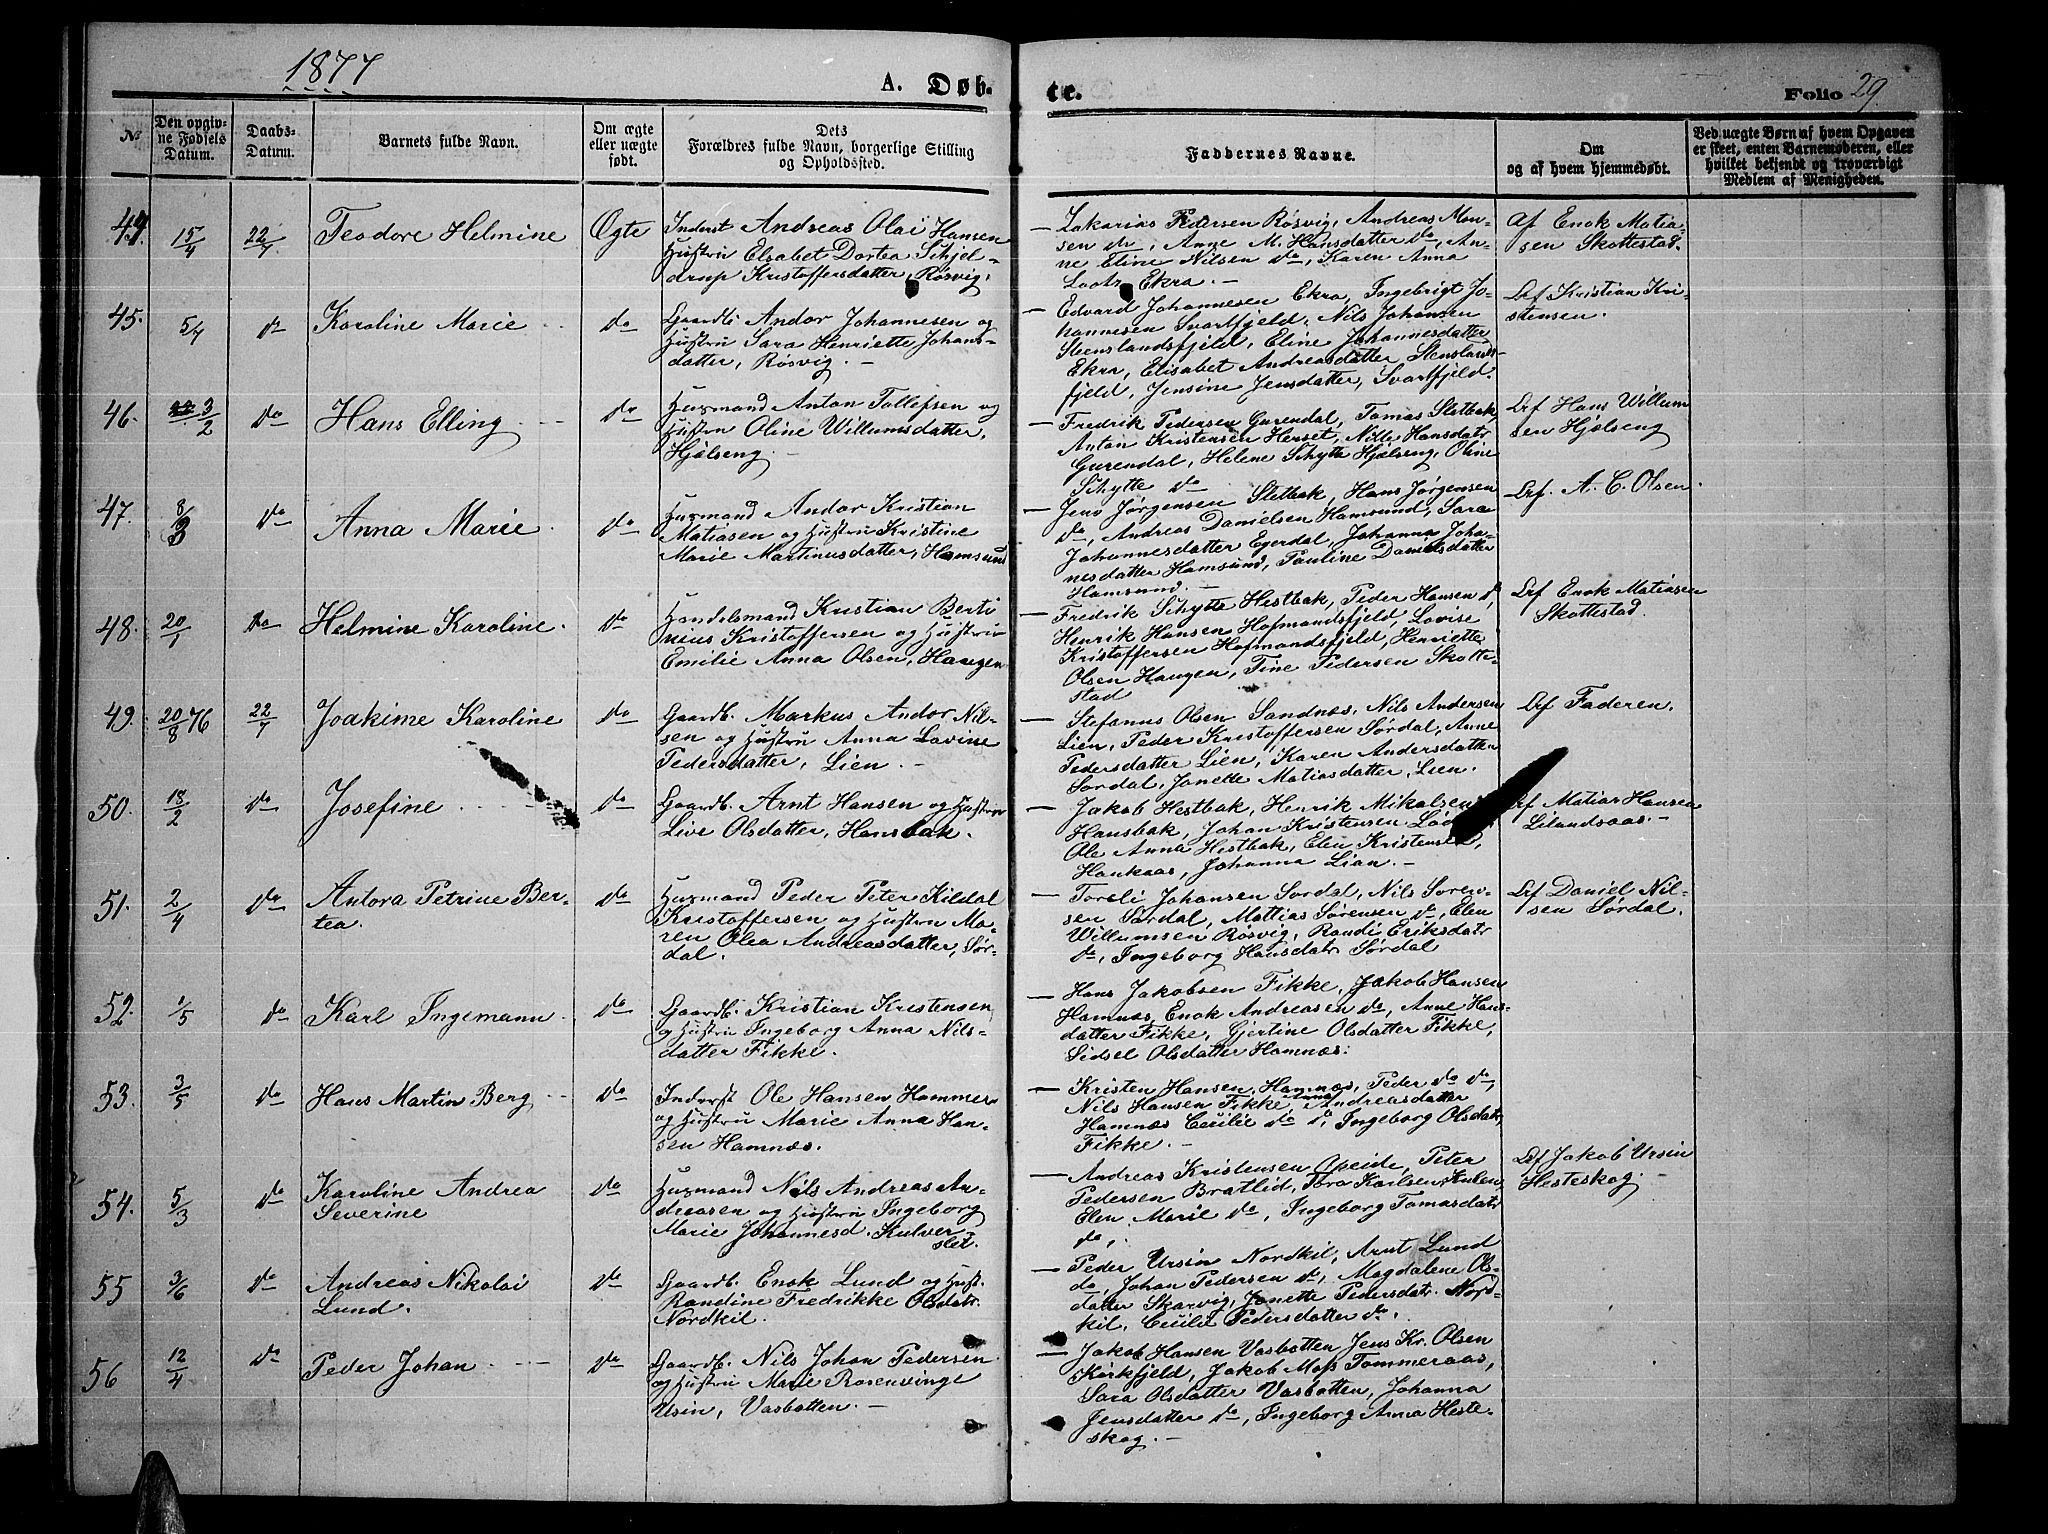 1877
A. Døb-
te.
Folio 29.
No
Den opgiv-
ne Fødsels
Datum.
Daabs-
Datum.
Barnets fulde Navn.
Om ægte
eller uægte
født.
Dets
Forældres fulde Navn, borgerlige Stilling
og Opholdssted.
Faddernes Navne.
Om
og af hvem hjemmedøbt.
Ved uægte Børn af hvem Opgaven
er skeet, enten Barnemoderen, eller
hvilket bekjendt og troværdigt
Medlem af Menigheden.
44. 15/4 22/7 Teodore Helmine Ægte
Inderst Andreas Olai Hansen
Hustru Elsabet Dortea Schjel-
drup Kristoffersdatter, Røsvig.
— Zakarias Pedersen Røsvig, Andreas Mon-
sen do, Anne M. Hansdatter do, An-
ne Eline Nilsen do, Karen Anna
Lootz Ekra. —
Af Enok Matia-
sen Skottestad.
45. 5/4 do Karoline Marie do
Gaardb. Andor Johannesen og
Hustru Sara Henriette Johans-
datter, Røsvig. —
— Edvard Johannesen Ekra, Ingebrigt Jo-
hannesen Svartfjeld, Nils Johansen
Steenslandsfjeld, Eline Johannesdatter
Ekra, Elisabet Andreasdatter, Stenslands-
fjeld, Jensine Jensdatter, Svartfjeld.
Af Kristian Kri-
stensen.
46. 3/2 do Hans Elling do
Husmand Anton Tollefsen og
Hustru Oline Willumsdatter,
Hjelseng. —
— Fredrik Pedersen Gurendal, Tomas Sletbak,
Anton Kristensen Herset, Nille Hansdatr
Gurendal, Helene Schytte Hjelseng, Oline
Schytte do
Af Hans Willum
sen Hjelseng
47. 8/3 do Anna Marie do
Husmand Andor Kristian
Matiasen og Hustru Kristine
Marie Martinusdatter, Hamsund
— Jens Jørgensen Sletbak, Hans Jørgensen
do, Andreas Danielsen Hamsund, Sara
Johannesdatter Egerdal, Johanna Joha-
nesdatter Hamsund, Pauline Danielsdatter
Hamsund. —
Af. A. C. Olsen
48. 20/1 do Helmine Karoline. do
Handelsmand Kristian Berti
nius Kristoffersen og Hustru
Emilie Anna Olsen, Haugen
— Fredrik Schytte Hestbak, Peder Hansen do,
Henrik Hansen Hofmandsfjeld, Lovise
Kristoffersen Hofmandsfjeld, Henriette
Olsen Haugen, Tine Pedersen Skotte-
stad
Af Enok Matiasen
Skottestad
49. 20/8 76 22/7 Joakime Karoline do
Gaardb. Markus Andor Nil-
sen og Hustru Anna Lovine
Pedersdatter, Lien. —
— Stefanus Olsen Sandnæs, Nils Andersen
Lien, Peder Kristoffersen Sørdal, Anne
Pedersdatter Lien, Karen Andersdatter
Sørdal, Janette Matiasdatter, Lien.
Af Faderen.
50. 18/2 do Josefine do
Gaardb. Arnt Hansen og Hustru
Live Olsdatter, Hansbak.
— Jakob Hestbak, Henrik Mikalsen
Hansbak, Johan Kristensen
Ole Anna Hestbak, Elen Kristensen,
Hankaas, Johanna Lian. —
Af Matias Hansen
51. 2/4 do Antora Petrine Ber-
tea. do
Husmand Peder Peter Kildal
Kristoffersen og Hustru Ma-
ren Olea Andreasdatter, Sør-
dal.
— Toreli Johansen Sørdal, Nils Soren-
sen Sørdal, Mattias Sørensen do, Elen
Willumsen Røsvig, Randi Eriksdatr
do, Ingeborg Hansdatr Sørdal
Af Daniel Nil-
sen Sørdal.
52. 1/5 do Karl Ingemann do
Gaardb. Kristian Kristensen
og Hustru Ingeborg Anna Nils-
datter Fikke.
— Hans Jakobsen Fikke, Jakob Hansen
Hamnæs, Enok Andreasen do, Anne Hans-
datter Fikke, Gjertine Olsdatter Fikke,
Sidsel Olsdatter Hamnæs.
53. 3/5 do Hans Martin Berg do
Inderst Ole Hansen Hammer
og Hustru Marie Anna Han-
sen Hamnæs.
— Kristen Hansen, Hamnæs, Peder do do,
Nils Hansen Fikke, Anna Andreasdatter
Hamnæs Cecilie do do, Ingeborg Olsdatr
Fikke. —
54. 5/3 do Karoline Andrea
Severine do
Husmand Nils Andreas An-
dreasen og Hustru Ingeborg
Marie Johannesd. Kulver-
slet.
— Andreas Kristensen Opeide, Peter
Pedersen Bratlid, Tora Karlsen
Elen Marie do, Ingeborg Tomasdatr
do,.
Af Jakob Ursin
Hesteskog —
55 3/6 do Andreas Nikolai
Lund. do
Gaardb. Enok Lund og Hust.
Randine Fredrikke Olsdatr.
Nordkil.
— Peder Ursin Nordkil, Arnt Lund
do, Johan Pedersen do, Magdalene Ols-
datter Skarvig, Janette Pedersdatr. Nord-
kil, Cecilie Pedersdatter do.
56 12/4 do Peder Johan do
Gaardb. Nils Johan Pedersen
og Hustru Marie Rosenvinge
Usin, Vasbotten. —
— Jakob Hansen Vasbotten, Jens Kr. Olsen
Kirkfjeld, Jakob Moss Tømmeraas,
Sara Olsdatter Vasbotten, Johanna
Jensdatter do, Ingeborg Anna Heste-
skog. —